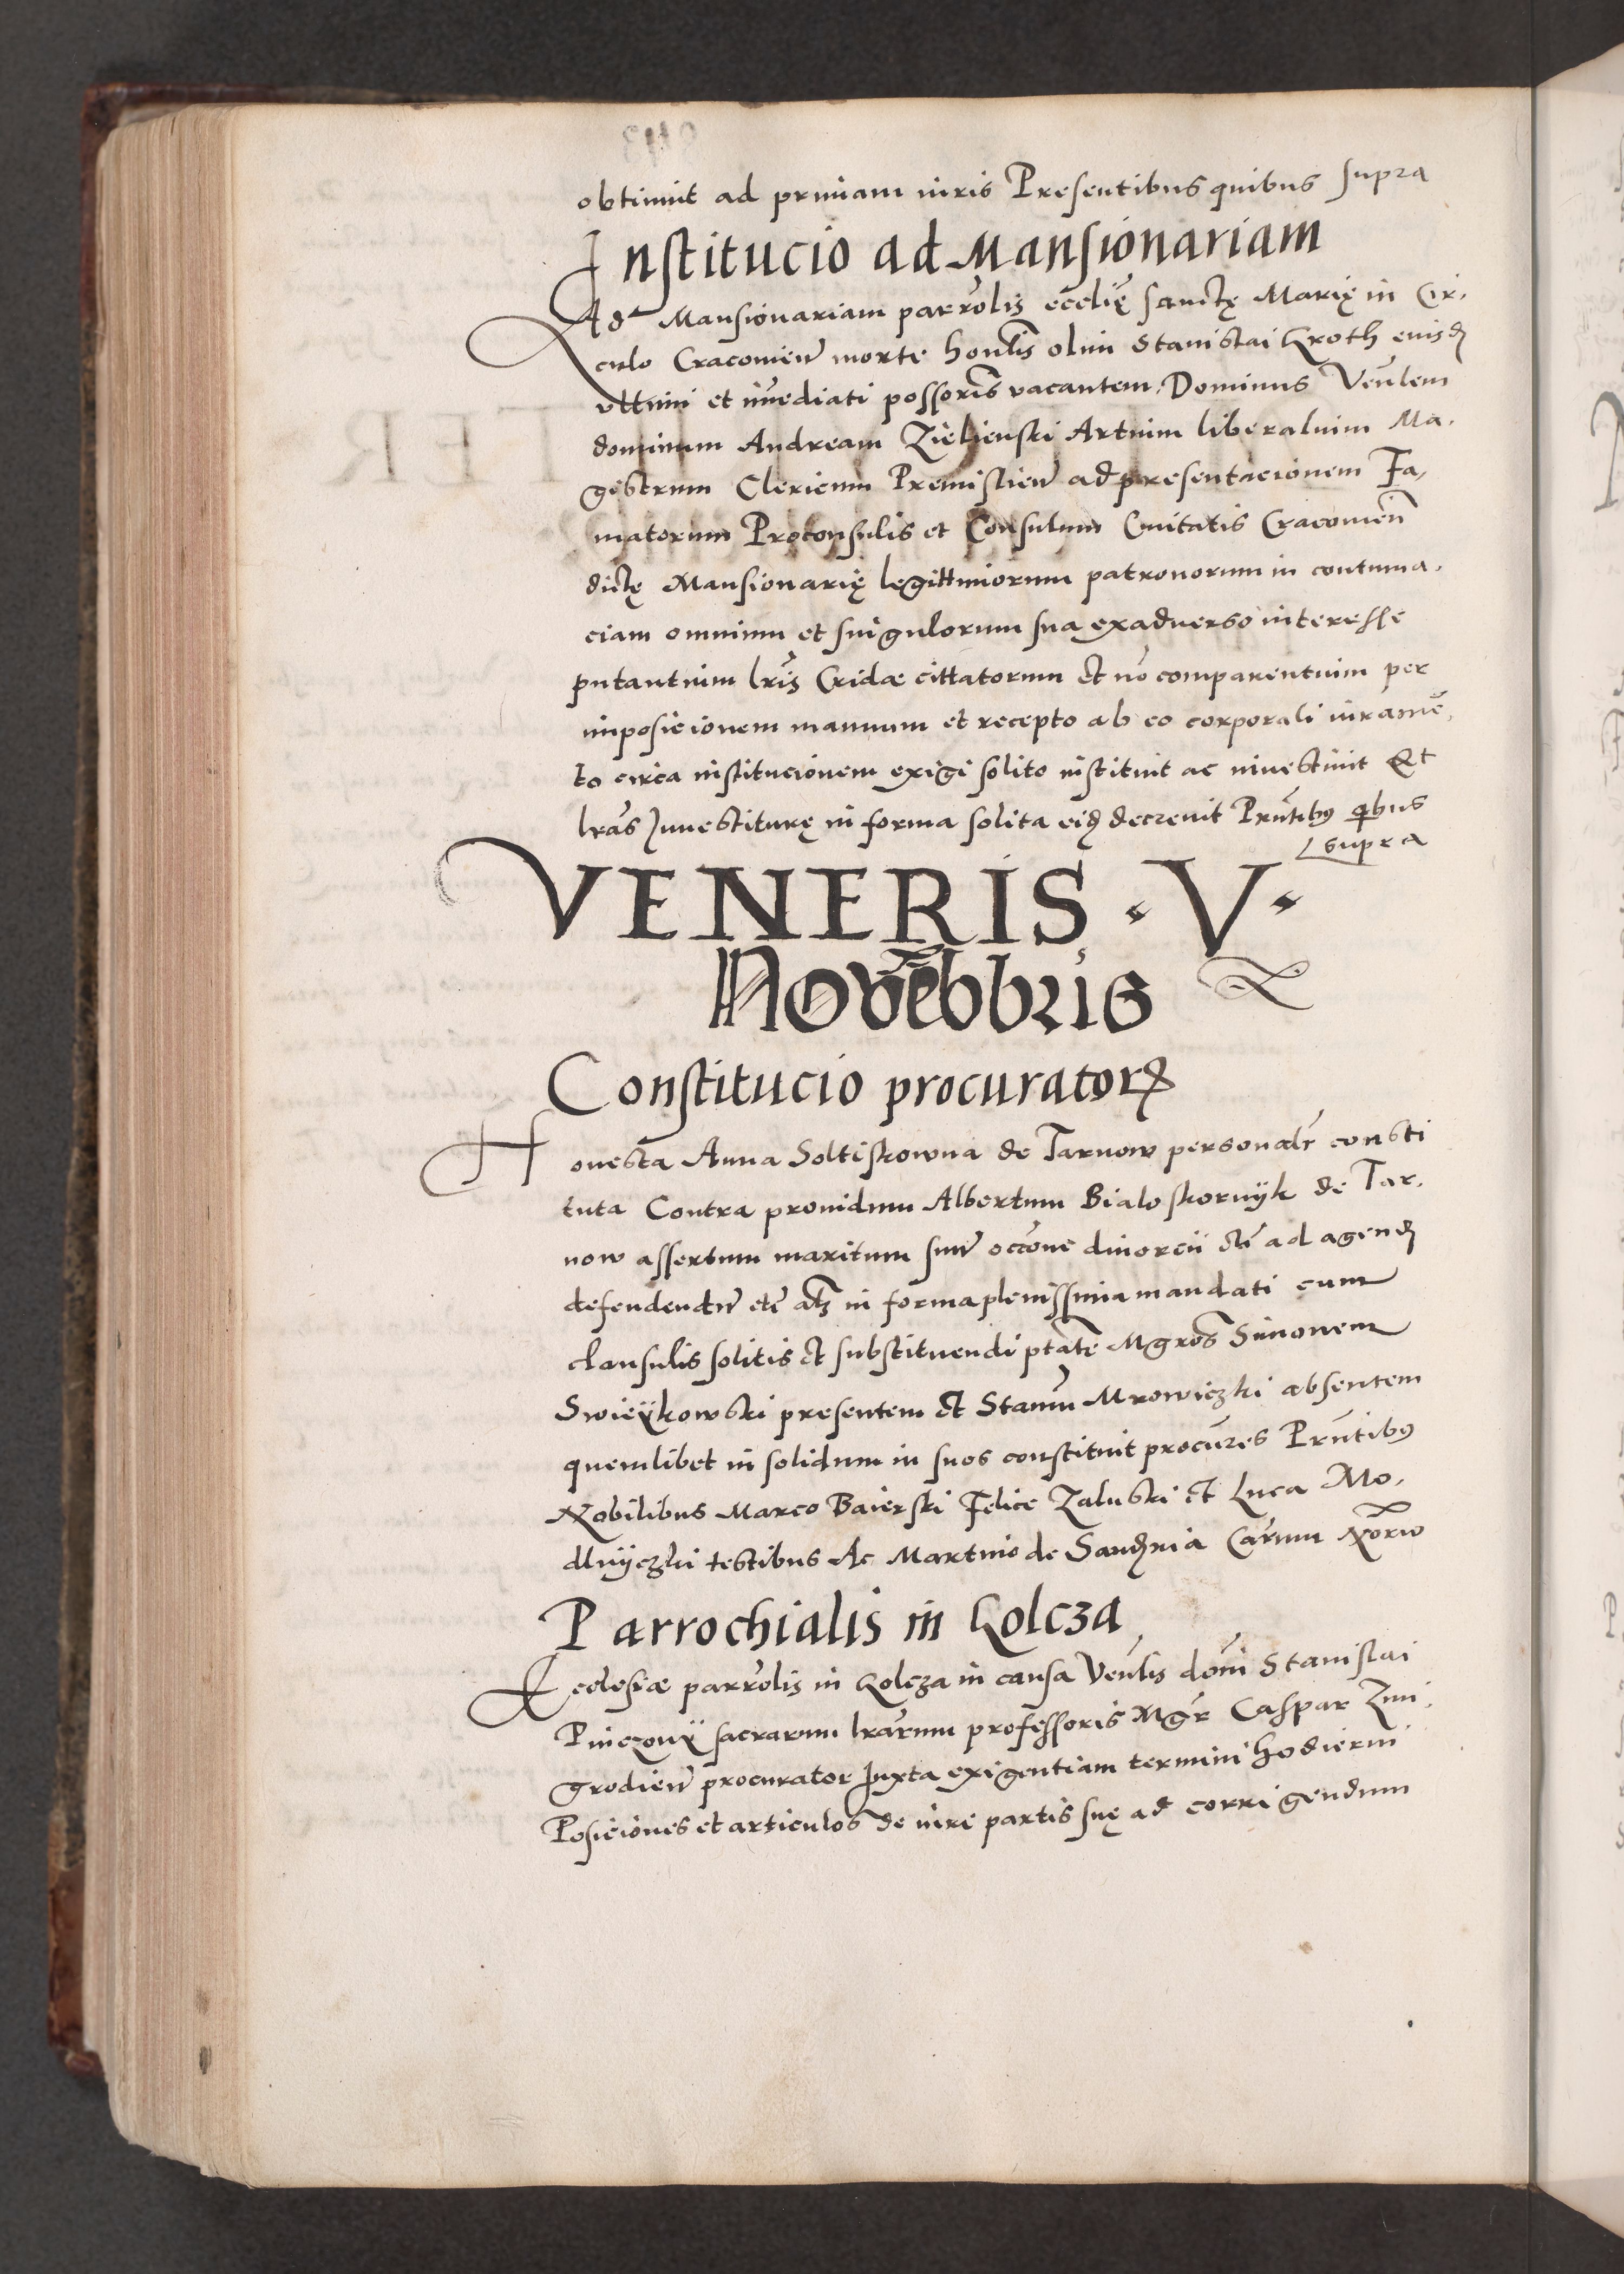 obtinuit ad primam iuris Presentibus quibus supra
Institucio ad Mansionariam
Ad Mansionariam parrolis̃ eccl̃ię sanctę Marię in Cir,
culo Cracouien̄ morte hon̄lis olim Stanislai Kroth eiusd̄
vltimi et im̄ediati possoris̃ vacantem, Dominus Ven̄lem
dominum Andream Zielienski Artium liberalium Ma,
gistrum Clericum Premislien̄ ad presentacionem Fa,
matorum Proconsulis et Consulum Ciuitatis Cracouien̄
dictę Mansionarię legittimorum patronorum in contuma,
ciam omnium et singulorum sua exaduerso interesse
putantium lr̄is Cridæ cittatorum et nō comparentium per
imposicionem manuum et recepto ab eo corporali iuramē,
to circa institucionem exigi solito instituit ac inuestiuit Et
lrās Inuestiturę in forma solita eid̄ decreuit Prn̄tibꝯ qbus
supra
VENERIS · V ·
Novēbbris
Constitucio procuratorꝝ
Honesta Anna Soltiskowna de Tarnow personalr̄ consti
tuta Contra prouidum Albertum Bialoskornÿk de Tar,
now assertum maritum suū occōne diuorcii etc̄ ad agend̄
defendendū etc̄ atꝫ in forma plenissima mandati cum
clausulis solitis et substituendi ptāte Mgros̄ Simonem
Swieÿkowski presentem et Stanm̄ Mrowiczki absentem
quemlibet in solidum in suos constituit procur̄es Prn̄tibꝯ
Nobilibus Marco Baierski Felice Zaluski et Luca Mo,
dlnÿczki testibus Ac Martino de Sand̄ria Car̄um Nōrio
Parrochialis in Kolcza
Ecclesiæ parrolis̃ in Kolcza in causa Ven̄lis dom̄i Stanislai
Pinczouÿ sacrarum lrārum professoris Mgr̄ Caspar Zmi,
grodien̄ procurator Juxta exigentiam termini hodierni
Posiciones et articulos de iure partis suę ad corrigendum